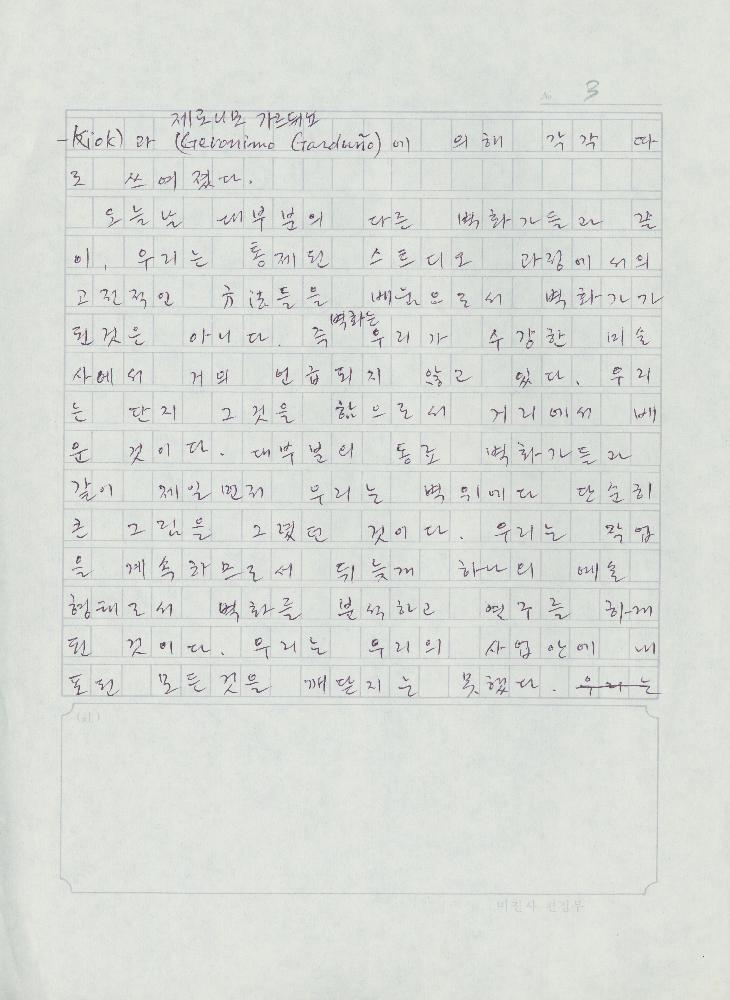 No 3
제로니모 가르듀뇨
-Kiok) 과 (Geronimo Garduño)에 의해 각각 따
로 쓰여졌다.
오늘날 대부분의 다른 벽화가들과 같
이, 우리는 통제된 스튜디오 과정에서의
고전적인 方法들을 배움으로서 벽화가가
된것은 아니다. 즉 벽화는 우리가 수강한 미술
사에서 거의 언급되지 않고 있다. 우리
는 단지 그것을 함으로서 거리에서 배
운 것이다. 대부분의 동료 벽화가들과
같이 제일먼저 우리는 벽위에다 단순히
큰 그림을 그렸던 것이다. 우리는 작업
을 계속하므로서 뒤늦게 하나의 예술
형태로서 벽화를 분석하고 연구를 하게
된 것이다. 우리는 우리의 사업안에 내
포된 모든것을 깨닫지는 못했다. 우리는
미진사 편집부